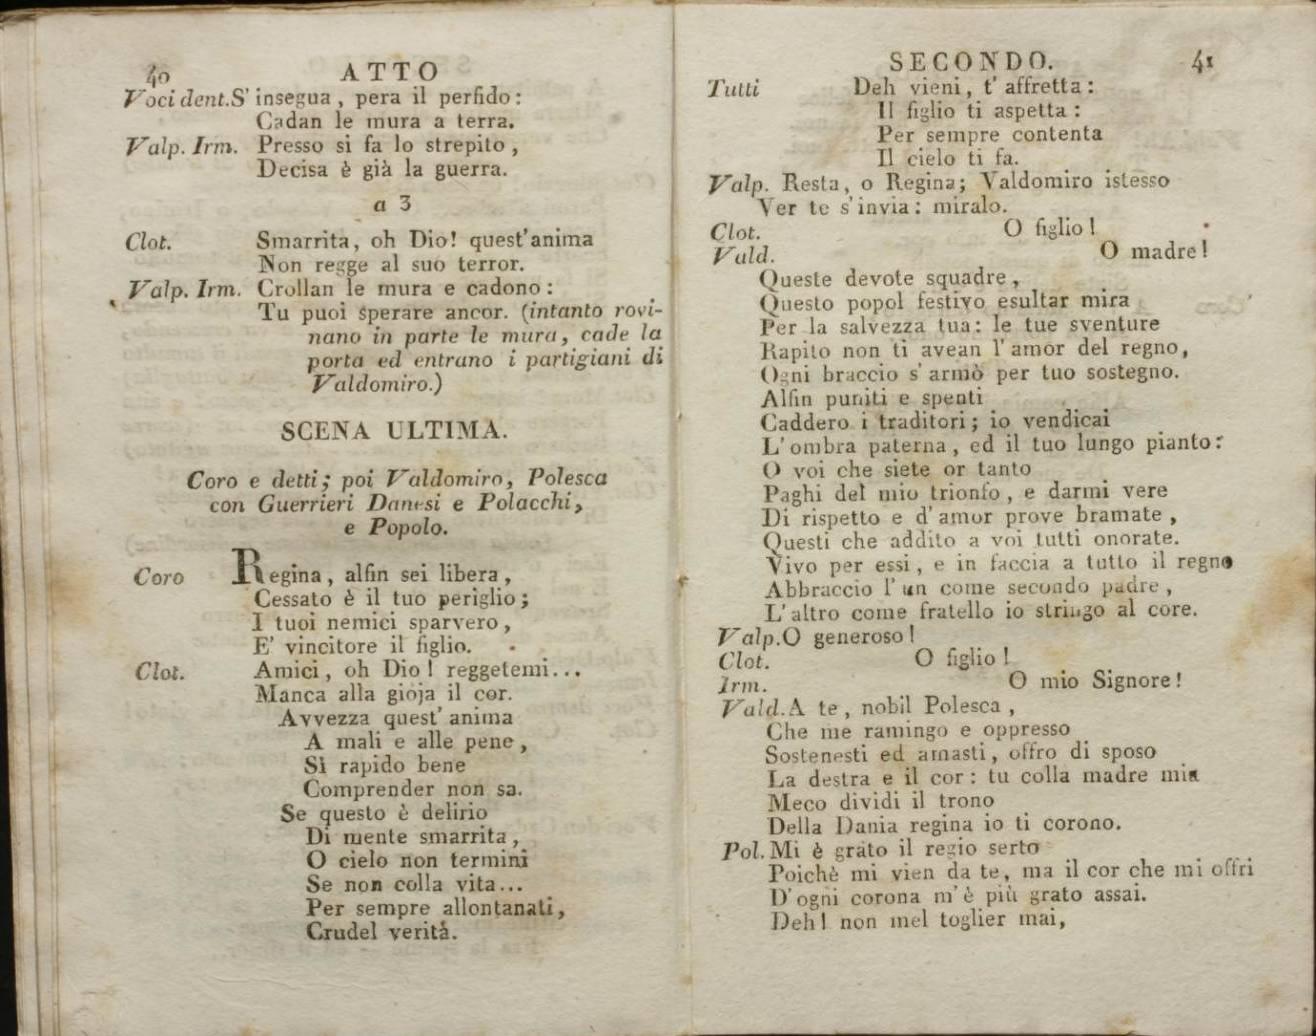 40 ATTO
Voci dent. S' insegua, pera il perfido:
Cadan le mura a terra.
Valp. Irm. Presso si fa lo strepito,
Decisa è già la guerra.
a 3
Clot. Smarrita, oh Dio! quest'anima
Non regge al suo terror.
Valp. Irm. Crollan le mura e cadono:
Tu puoi sperare ancor. (intanto rovi-
nano in parte le mura, cade la
porta ed entrano i partigiani di
Valdomiro.)
SCENA ULTIMA.
Coro e detti; poi Valdomiro, Polesca
con Guerrieri Danesi e Polacchi,
e Popolo.
Coro Regina, alfin sei libera,
Cessato è il tuo periglio;
I tuoi nemici sparvero,
E' vincitore il figlio.
Clot. Amici, oh Dio! reggetemi...
Manca alla gioja il cor.
Avvezza quest' anima
A mali e alle pene,
Sì rapido bene
Comprender non sa.
Se questo è delirio
Di mente smarrita,
O cielo non termini
Se non colla vita...
Per sempre allontanati,
Crudel verità.
SECONDO. 41
Tutti Deh vieni, t' affretta:
Il figlio ti aspetta:
Per sempre contenta
Il cielo ti fa.
Valp. Resta, o Regina; Valdomiro istesso
Ver te s'invia: miralo.
Clot. O figlio!
Vald. O madre!
Queste devote squadre,
Questo popol festivo esultar mira
Per la salvezza tua: le tue sventure
Rapito non ti avean l' amor del regno,
Ogni braccio s' armò per tuo sostegno.
Alfin puniti e spenti
Caddero i traditori; io vendicai
L' ombra paterna, ed il tuo lungo pianto:
O voi che siete or tanto
Paghi del mio trionfo, e darmi vere
Di rispetto e d' amor prove bramate,
Questi che addito a voi tutti onorate.
Vivo per essi, e in faccia a tutto il regno
Abbraccio l' un come secondo padre,
L' altro come fratello io stringo al core.
Valp. O generoso!
Clot. O figlio!
Irm. O mio Signore!
Vald. A te, nobil Polesca,
Che me ramingo e oppresso
Sostenesti ed amasti, offro di sposo
La destra e il cor: tu colla madre mia
Meco dividi il trono
Della Dania regina io ti corono.
Pol. Mi è grato il regio serto
Poichè mi vien da te, ma il cor che mi offri
D' ogni corona m' è più grato assai.
Deh! non mel toglier mai,